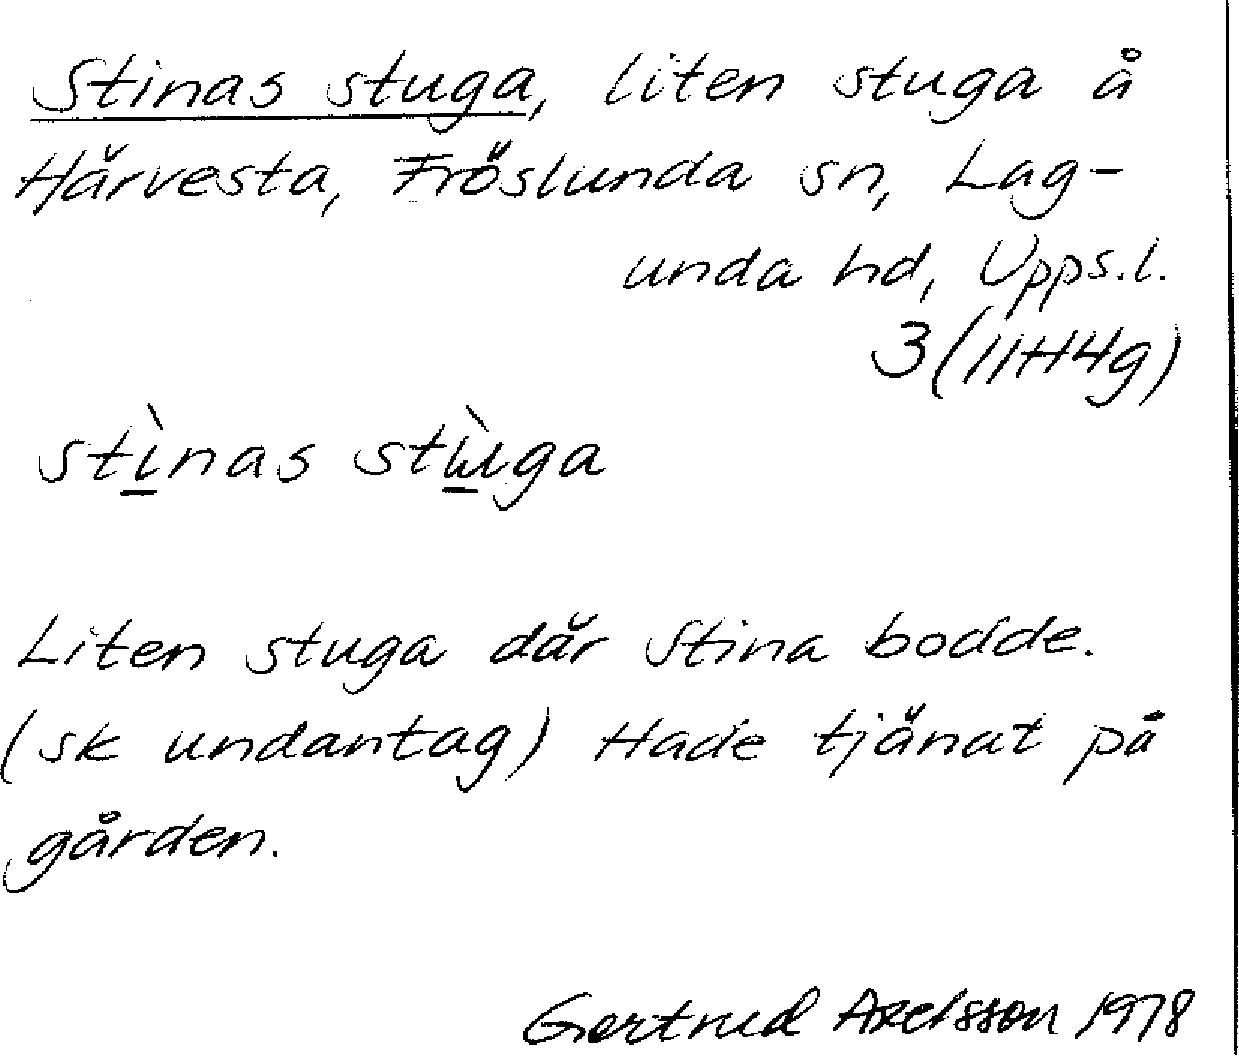 Stinas stuga, liten stuga å
Härvesta, Fröslunda sn, Lag-
unda hd, Upps.l.
3(11H4g)
stìnas stùga
Liten stuga där Stina bodde.
(sk undantag) Hade tjänat på
gården.
Gertrud Axelsson 1978